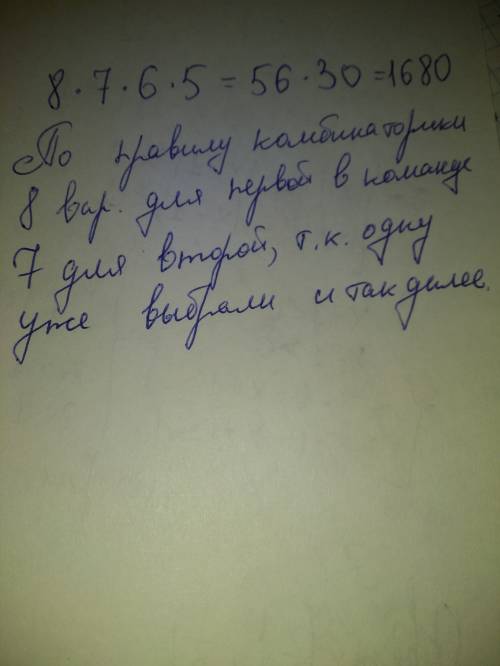 8 · 7 · 6 · 5 = 56 · 30 = 1680
По правилу комбинаторики
8 вар. для первой в команде
7 для второй, т.к. одну
уже выбрали и так далее.